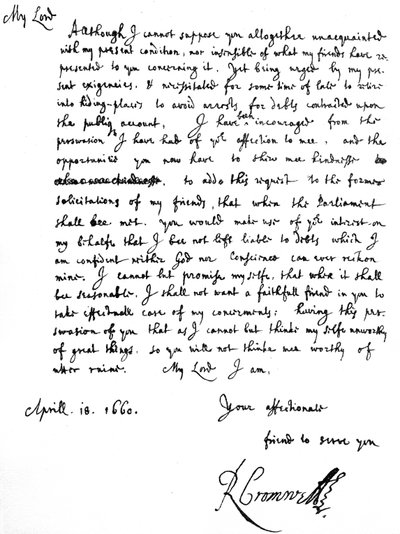 My Lord
Allthough I cannot suppose you alltogether unacquainted
with my present condition, nor insensible of what my friends have re-
presented to you concerning it. Yet being urged by my pre-
sent exigencies, & necessitated for some time of late to retire
into hiding-places to avoid arrests for debts contracted upon
the publiq account, I have been incouraged from the
perswasion I have had of yor affection to mee, and the
opportunitie you now have to shew mee kindnesse
to adde this request to the former
solicitations of my friends, that when the Parliament
shall bee met, you would make use of yor interest on
my behalfe that I bee not left liable to debts which I
am confident neither God nor Conscience can ever reckon
mine. I cannot but promise my selfe, that when it shall
bee seasonable, I shall not want a faithfull friend in you to
take effectuall care of my concernments: having this per-
swasion of you that as I cannot but thinke my selfe unworthy
of great things, so you will not thinke mee worthy of
utter ruine. My Lord I am,
Aprill. 18. 1660. Your affectionate
friend to serve you
R Cromwell